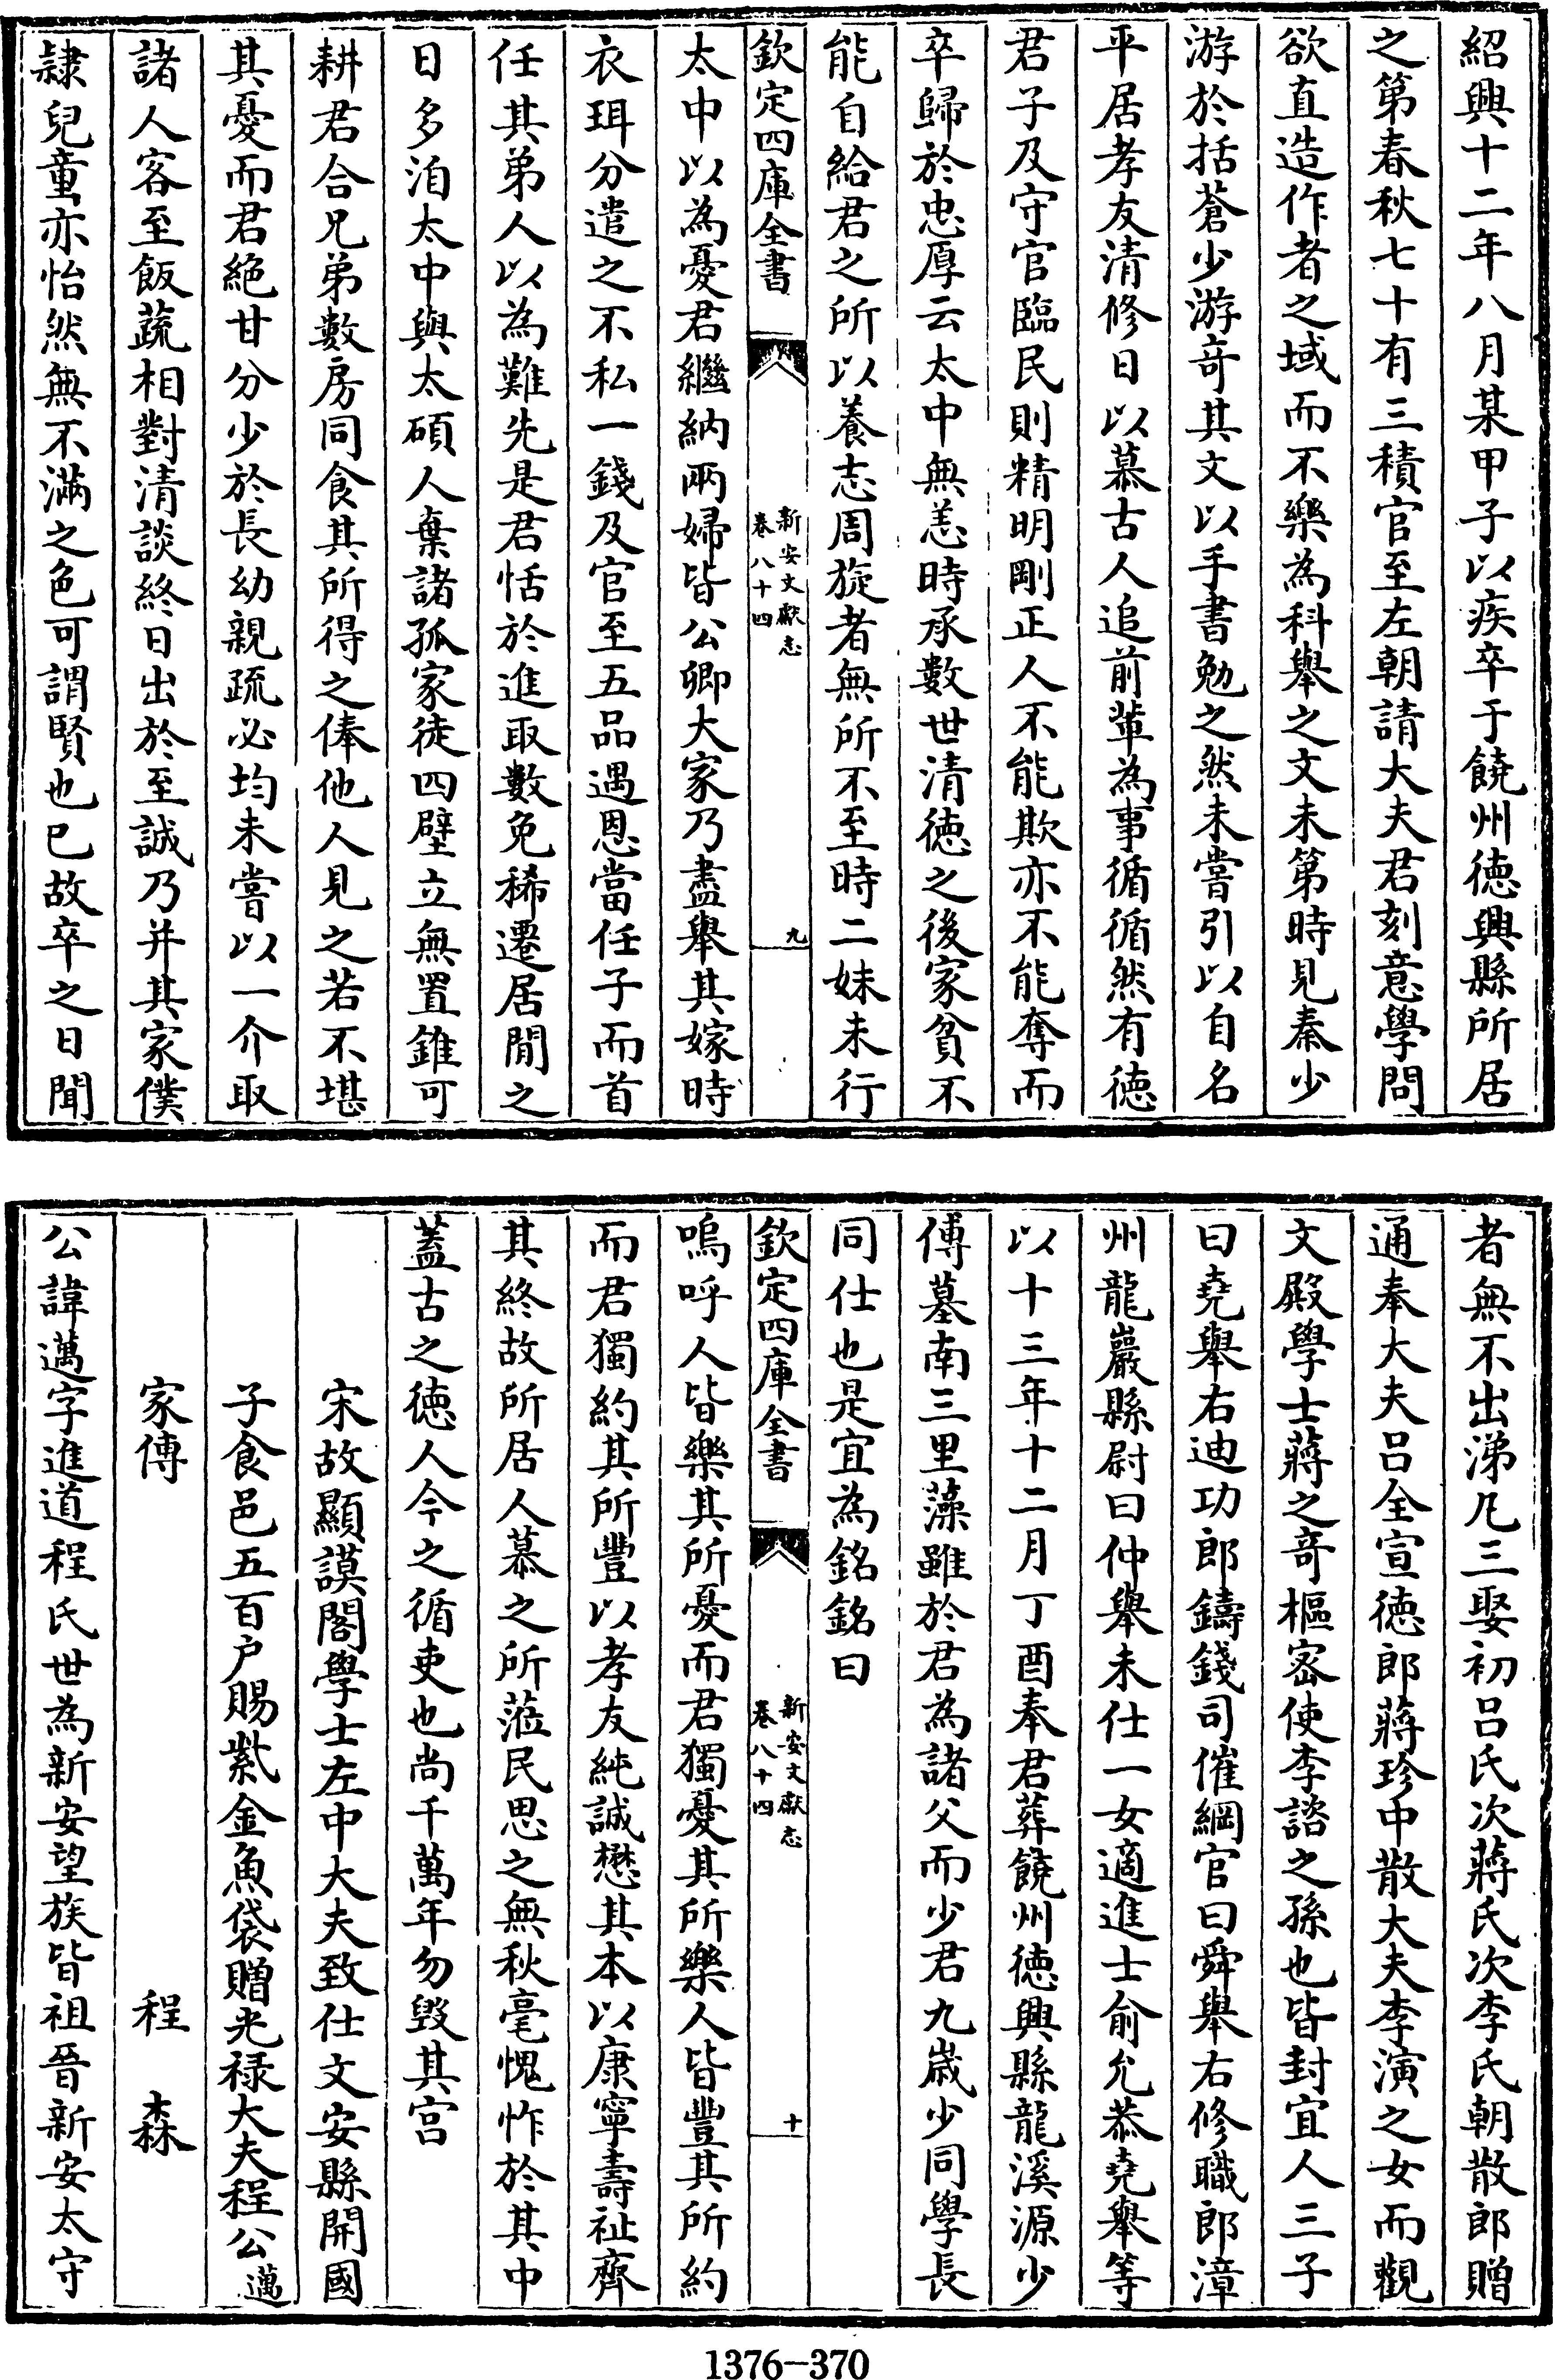 紹興十二年八月某甲子以疾卒于饒州徳興縣所居
之第春秋七十有三積官至左朝請大夫君刻意學問
欲直造作者之域而不樂為科舉之文未第時見秦少
游於括蒼少游竒其文以手書勉之然未嘗引以自名
平居孝友清修日以慕古人追前輩為事循循然有徳
君子及守官臨民則精明剛正人不能欺亦不能奪而
卒歸於忠厚云太中無恙時承數世清徳之後家貧不
能自給君之所以養志周旋者無所不至時二妹未行
欽定四庫全書
新安文獻志
卷八十四
九
太中以為憂君繼納兩婦皆公卿大家乃盡舉其嫁時
衣珥分遣之不私一錢及官至五品遇恩當任子而首
任其弟人以為難先是君恬於進取數免稀遷居閒之
日多洎太中與太碩人棄諸孤家徒四壁立無置錐可
耕君合兄弟數房同食其所得之俸他人見之若不堪
其憂而君絶甘分少於長幼親疏必均未嘗以一介取
諸人客至飯蔬相對清談終日出於至誠乃并其家僕
隷兒童亦怡然無不滿之色可謂賢也已故卒之日聞
者無不出涕凡三娶初呂氏次蔣氏次李氏朝散郎贈
通奉大夫呂全宣徳郎蔣珍中散大夫李演之女而觀
文殿學士蔣之竒樞宻使李諮之孫也皆封宜人三子
曰堯舉右迪功郎鑄錢司催綱官曰舜舉右修職郎漳
州龍巖縣尉曰仲舉未仕一女適進士俞允恭堯舉等
以十三年十二月丁酉奉君葬饒州徳興縣龍溪源少
傅墓南三里藻雖於君為諸父而少君九歲少同學長
同仕也是宜為銘銘曰
欽定四庫全書
新安文獻志
卷八十四
十
嗚呼人皆樂其所憂而君獨憂其所樂人皆豐其所約
而君獨約其所豐以孝友純誠懋其本以康寧壽祉齊
其終故所居人慕之所蒞民思之無秋毫愧怍於其中
蓋古之徳人今之循吏也尚千萬年勿毀其宮
宋故顯謨閣學士左中大夫致仕文安縣開國
子食邑五百户賜紫金魚袋贈光禄大夫程公邁
家傳
程森
公諱邁字進道程氏世為新安望族皆祖晉新安太守
1376-370